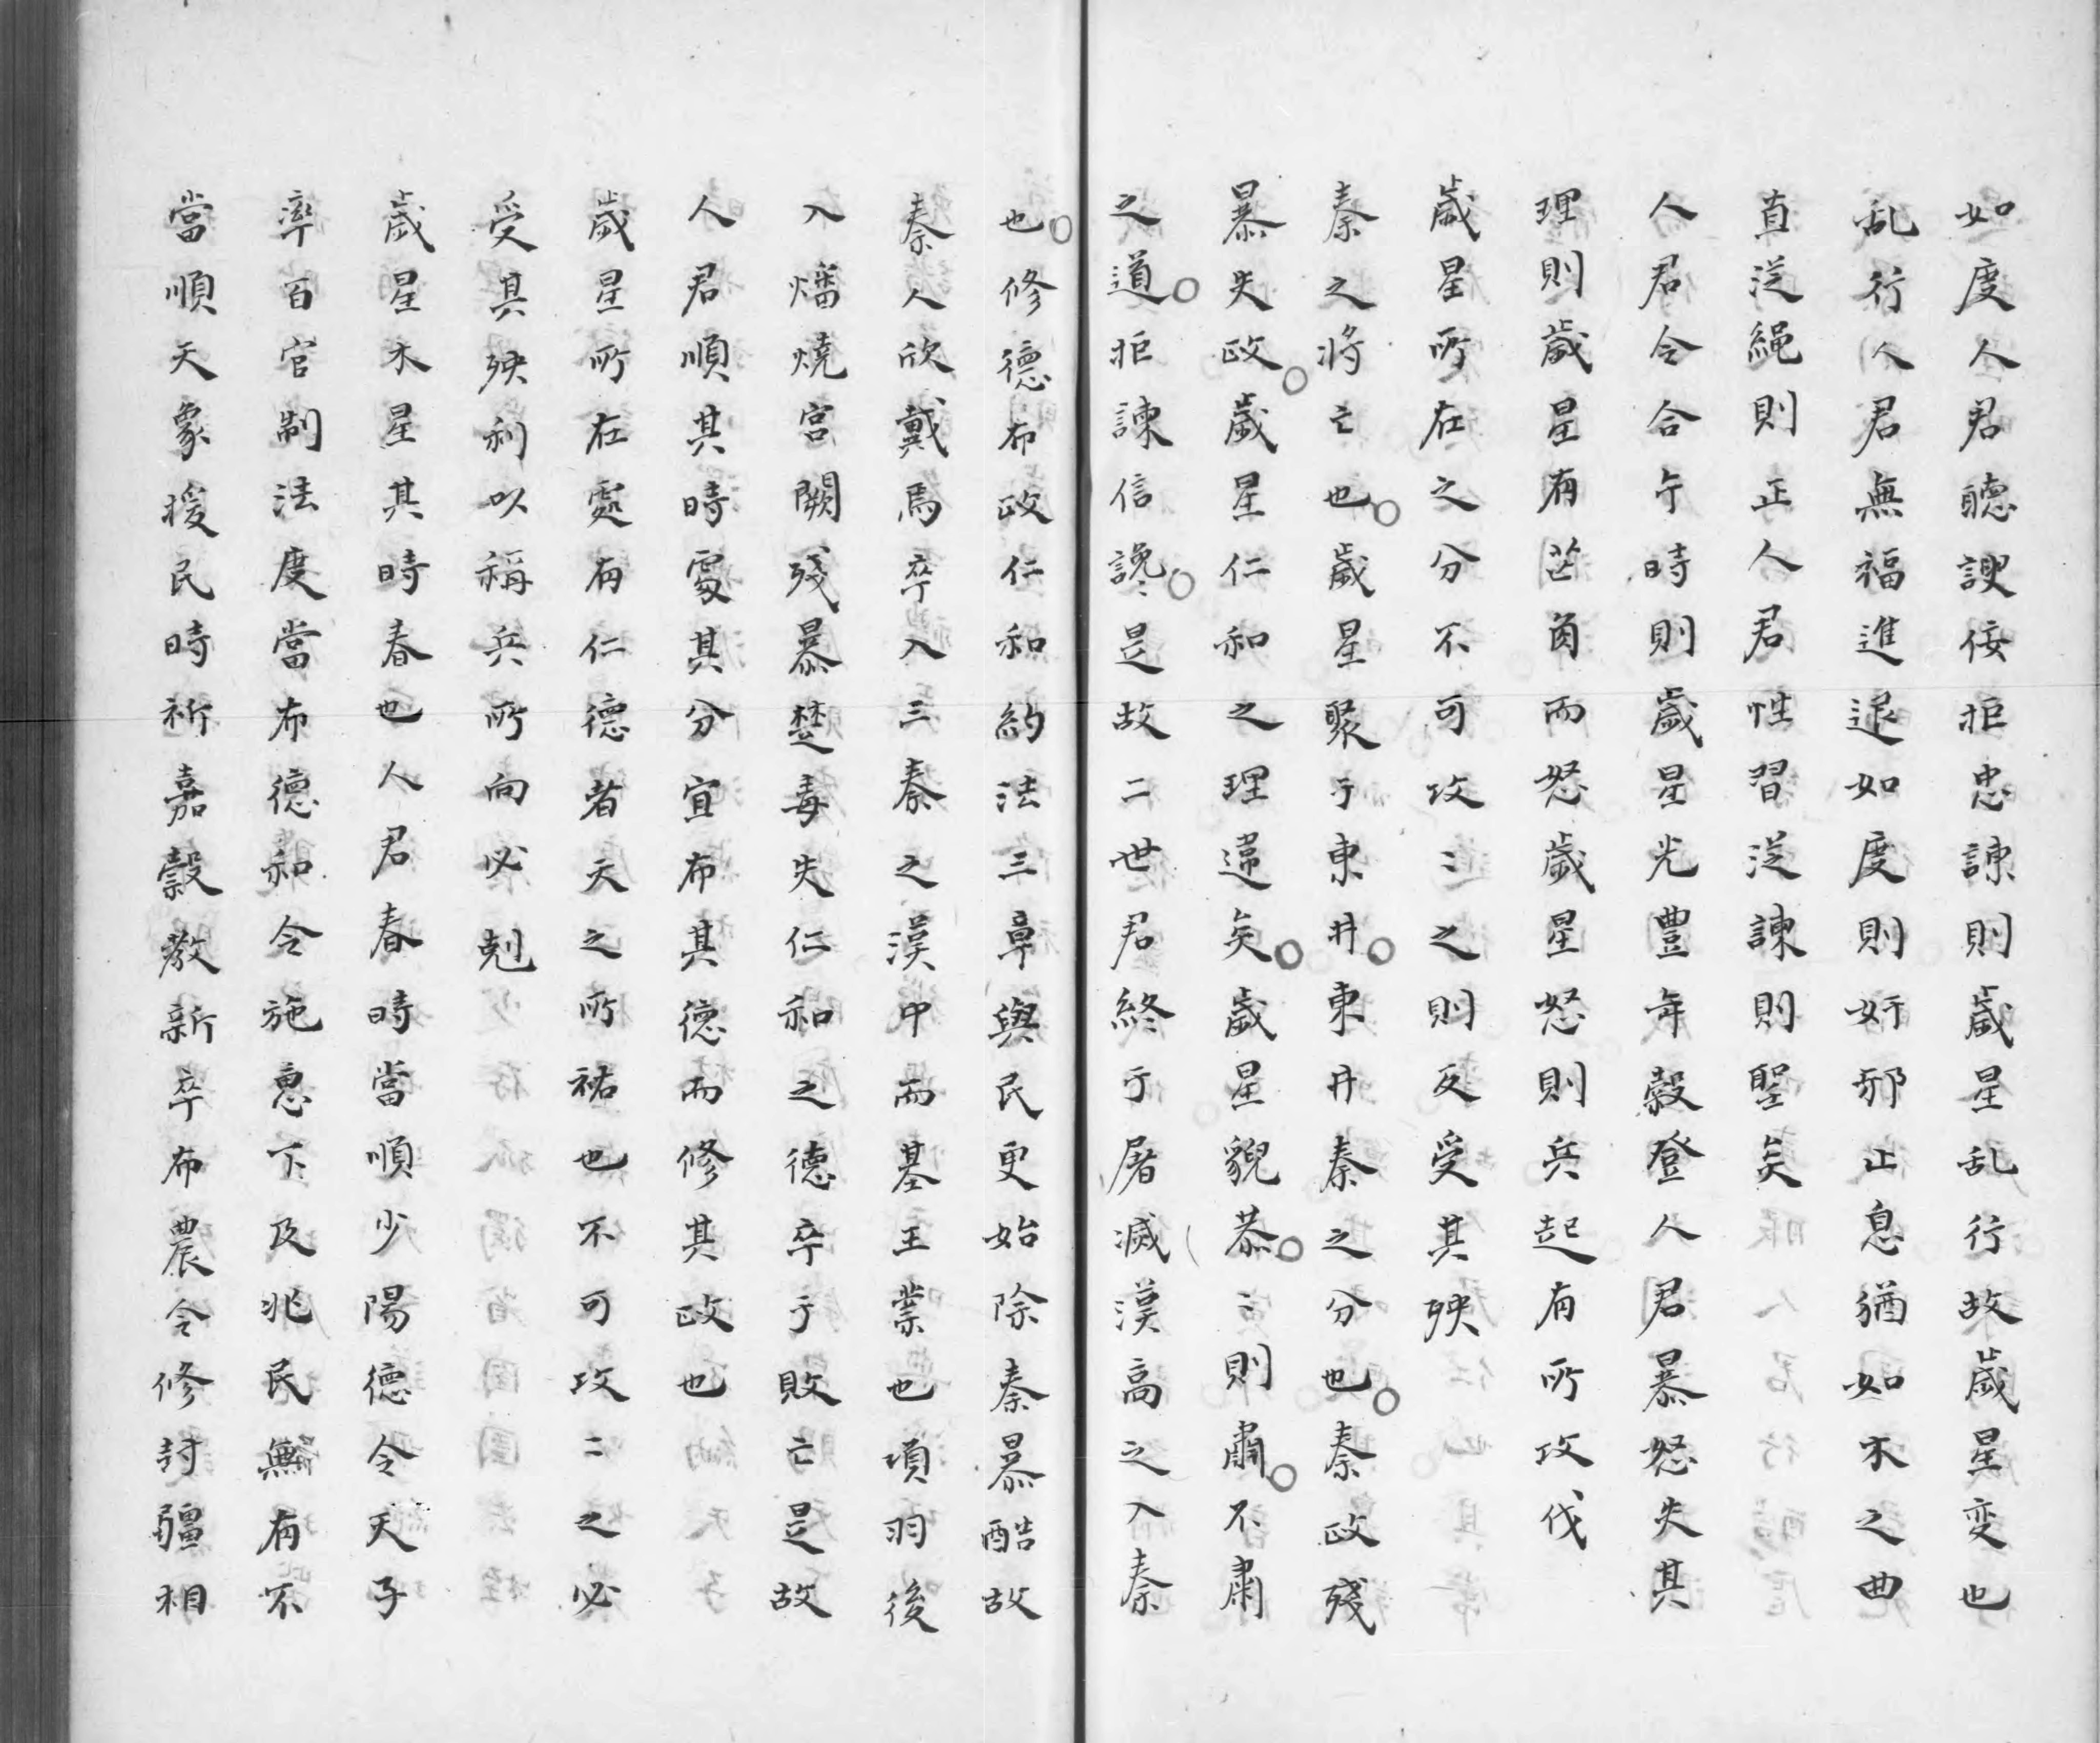 如度人君聴諛佞拒忠諌則歳星乱行故歳星変也
乱行人君無福進退如度則奸邪止息猶如木之曲
直従縄則正人君性習従諌則聖矣
人君令合于時則歳星光豊年穀登人君暴怒失其
理則歳星有芒角而怒歳星怒則兵起有所攻伐
歳星所在之分不可攻〻之則反受其殃
秦之将亡也歳星聚于東井東井秦之分也秦政残
暴失政歳星仁和之理違矣歳星貌恭〻則肅不肅
之道拒諌信讒是故二世君終于屠滅漢高之入秦
也修徳布政仁和約法三章與民更始除秦暴酷故
秦人欣戴焉卒入三秦之漢中而基王業也項羽後
入燔焼宮闕残暴楚毒失仁和之徳卒于敗亡是故
人君順其時處其分宜布其徳而修其政也
歳星所在處有仁徳者天之所祐也不可攻〻之必
受其殃利以稱兵所向必剋
歳星木星其時春也人君春時當順少陽徳令天子
率百官制法度當布徳和令施恵下及兆民無有不
當順天象援民時祈嘉穀教新卒布農令修封疆相